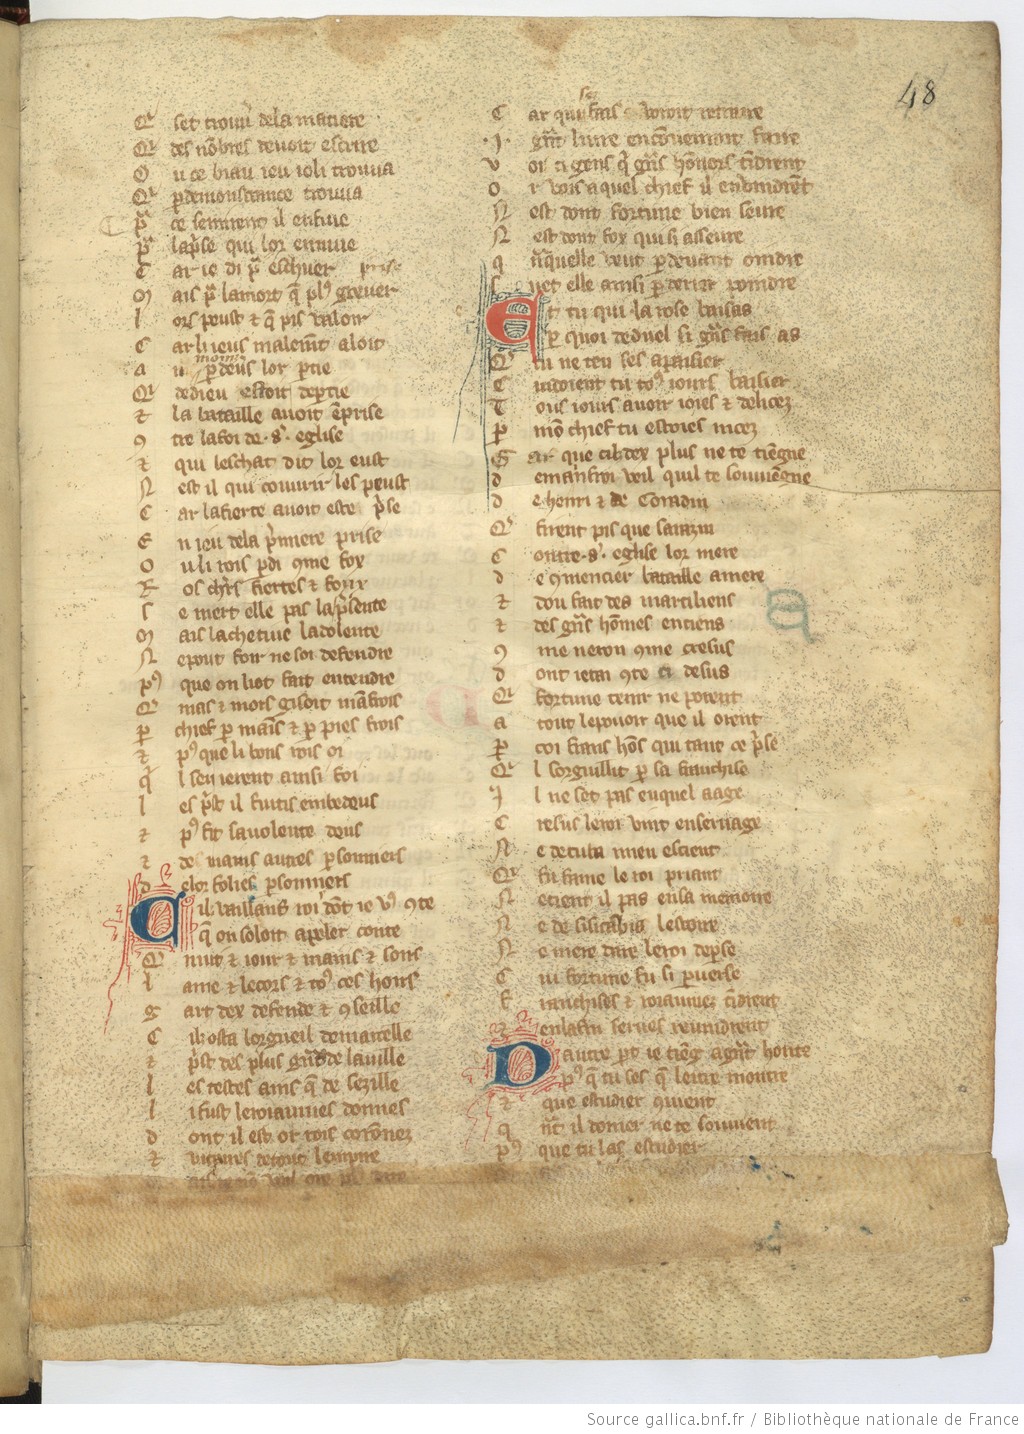 48
Qr set trouu dela matiere
Qr des nōbres deuoit escrire
O u ce biau ieu ioli trouua
Qr ꝑ demonstrance trouua
ce sentirent il enfuie
qui lor ennuie
C ar ie di eschuer
M ais la mort
l ors peust ⁊ q̄ pis valoir
C ar li ieus malemt̄ aloit
a u lor ꝑtie
Qr de dieu estoit deꝑtie
⁊ la bataille auoit ēprise
9 tre la foi de .sͤ. eglise
⁊ qui leschat dit lor eust
N est il qui couurir les peust
C ar la fierte auoit este p̄se
E n ieu dela p̄miere prise
O u li rois ꝑdi 9me fox
R os chr̄s fierges ⁊
S e niert elle pas la p̄sente
M ais la chetiue la dolente
N e pout foir ne soi defendre
pꝰ que on liot fait entendre
Qr mas ⁊ mors gisoit māfrois
ꝑ chief ꝑ mais ⁊ ꝑ pies frois
⁊ pꝰ que li bons rois oi
q̄ l sen ierent ainsi foi
l es p̄st il fuitis embedeus
⁊ pꝰ fit sa volente deus
⁊ de mains autres ꝑsonniers
d e lor folies ꝑsonniers
C il vaillans roi dōt ie vꝰ 9te
q̄ on soloit apeler conte
Q nuit ⁊ iour ⁊ mains ⁊ soirs
l ame ⁊ le cors ⁊ toꝰ ces hoirs
g art dex defende ⁊ 9seille
C il osta lorgueil de marcelle
⁊ p̄st des plus de la uille
l es testes ains q̄ de sezille
l i fust le roiaumes donnes
d ont il est or rois coronez
⁊ uicaires de tout lempire
C ar qui se fais voroit retraire
.J. grāt liure en cōuenroit faire
v oi ci gens q̄ gr̄s hōnors tīdrent
O r vois a quel chief il en vindrēt
N est dont fortune bien seure
N est dont fox qui si asseure
q n̄t quelle veut ꝑ deuant oindre
S uet elle ainsi ꝑ derier poindre
E t tu qui la rose baisas
ꝑ quoi de duel si gr̄s fais as
Qr tu ne ten ses apaisier
C uidoient tu toꝰ iours baisier
T ous iours auoir ioies ⁊ delicez
ꝑ mō chief tu es fols ⁊ nicez
G ar que cil dex plus ne te tiēgne
d e manfroi veil quil te souuiēgne
d e henri ⁊ de Coradin
Qr firent pis que sarazin
C ontre .sͤ. eglise lor mere
d e 9mencier bataille amere
⁊ dou fait des marciliens
⁊ des gr̄s hōmes enciens
9 me neron 9me cresus
d ont ietai 9te ci desus
Qr fortune tenir ne porent
a tout le pouoir que il orent
ꝑ coi frans hōs qui tant ce p̄se
Qr l sorguillit ꝑ sa franchise
J l ne set pas en quel aage
C resus le roi vint en seruage
N e decuba mieu escient
Qr fu fame le roi priant
N etient il pas en sa memoire
N e de sisicabis lestoire
N e mere daire le roi de ꝑse
C ui fortune fu si ꝑuerse
F ranchises ⁊ roiaumez tīdrent
⁊ en la fin serues reuindrent
D autre ꝑt ie tieg̃ a grāt honte
pꝰ q̄ tu ses q̄ lettre montre
⁊ que estudier 9uient
q nt̄ il domer ne te souuient
pꝰ que tu las estudier
Source gallica.bnf.fr / Bibliothèque nationale de France